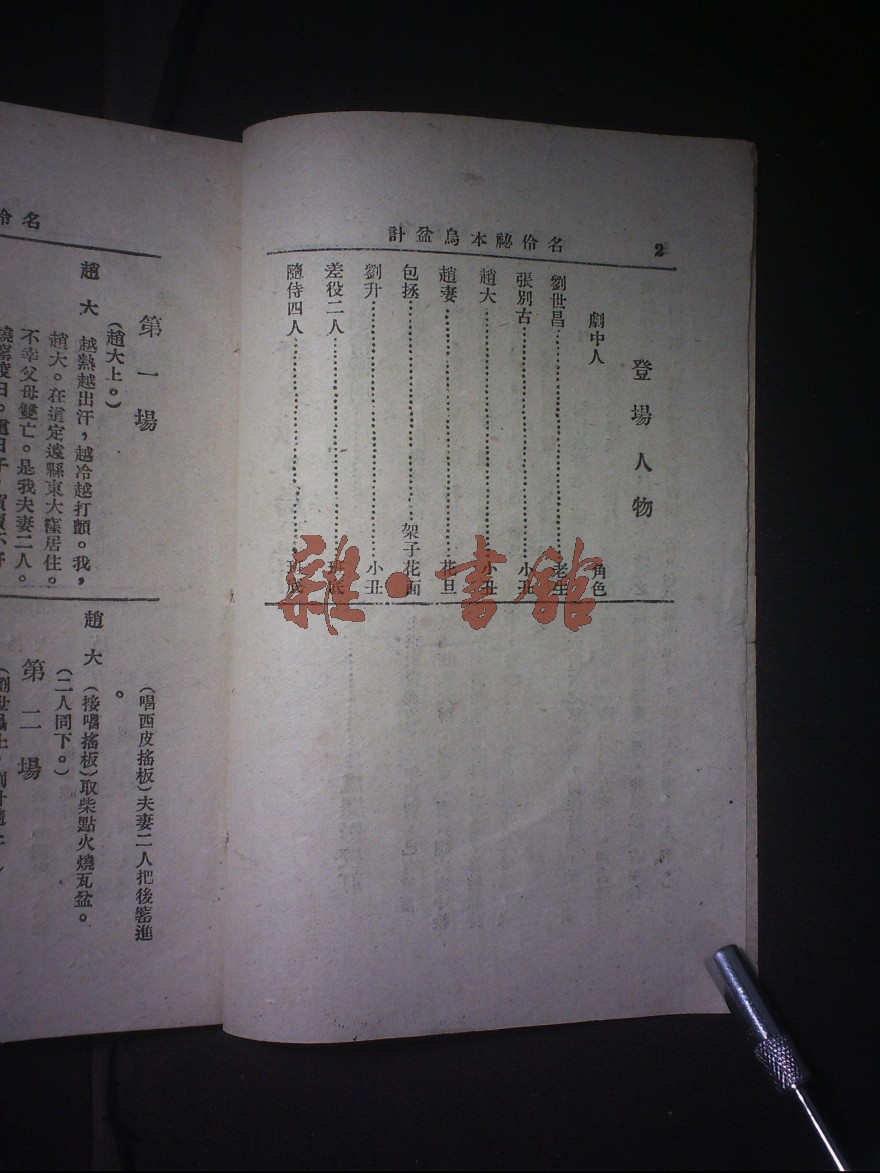 2
名伶祕本烏盆計
登場人物
劇中人 角色
劉世昌……老生
張別古……小丑
趙大……小丑
趙妻……花旦
包拯……架子花面
劉升……小丑
差役二人……班底
隨侍四人……班底
雜·書館
名伶
第一場
(趙大上。)
趙大 越熱越出汗，越冷越打顫。我，
趙大。在這定遠縣東大窪居住。
不幸父母雙亡。是我夫妻二人。
(唱西皮搖板)夫妻二人把後窰進
。
趙大 (接唱搖板)取柴點火燒瓦盆。
(二人同下。)
第二場